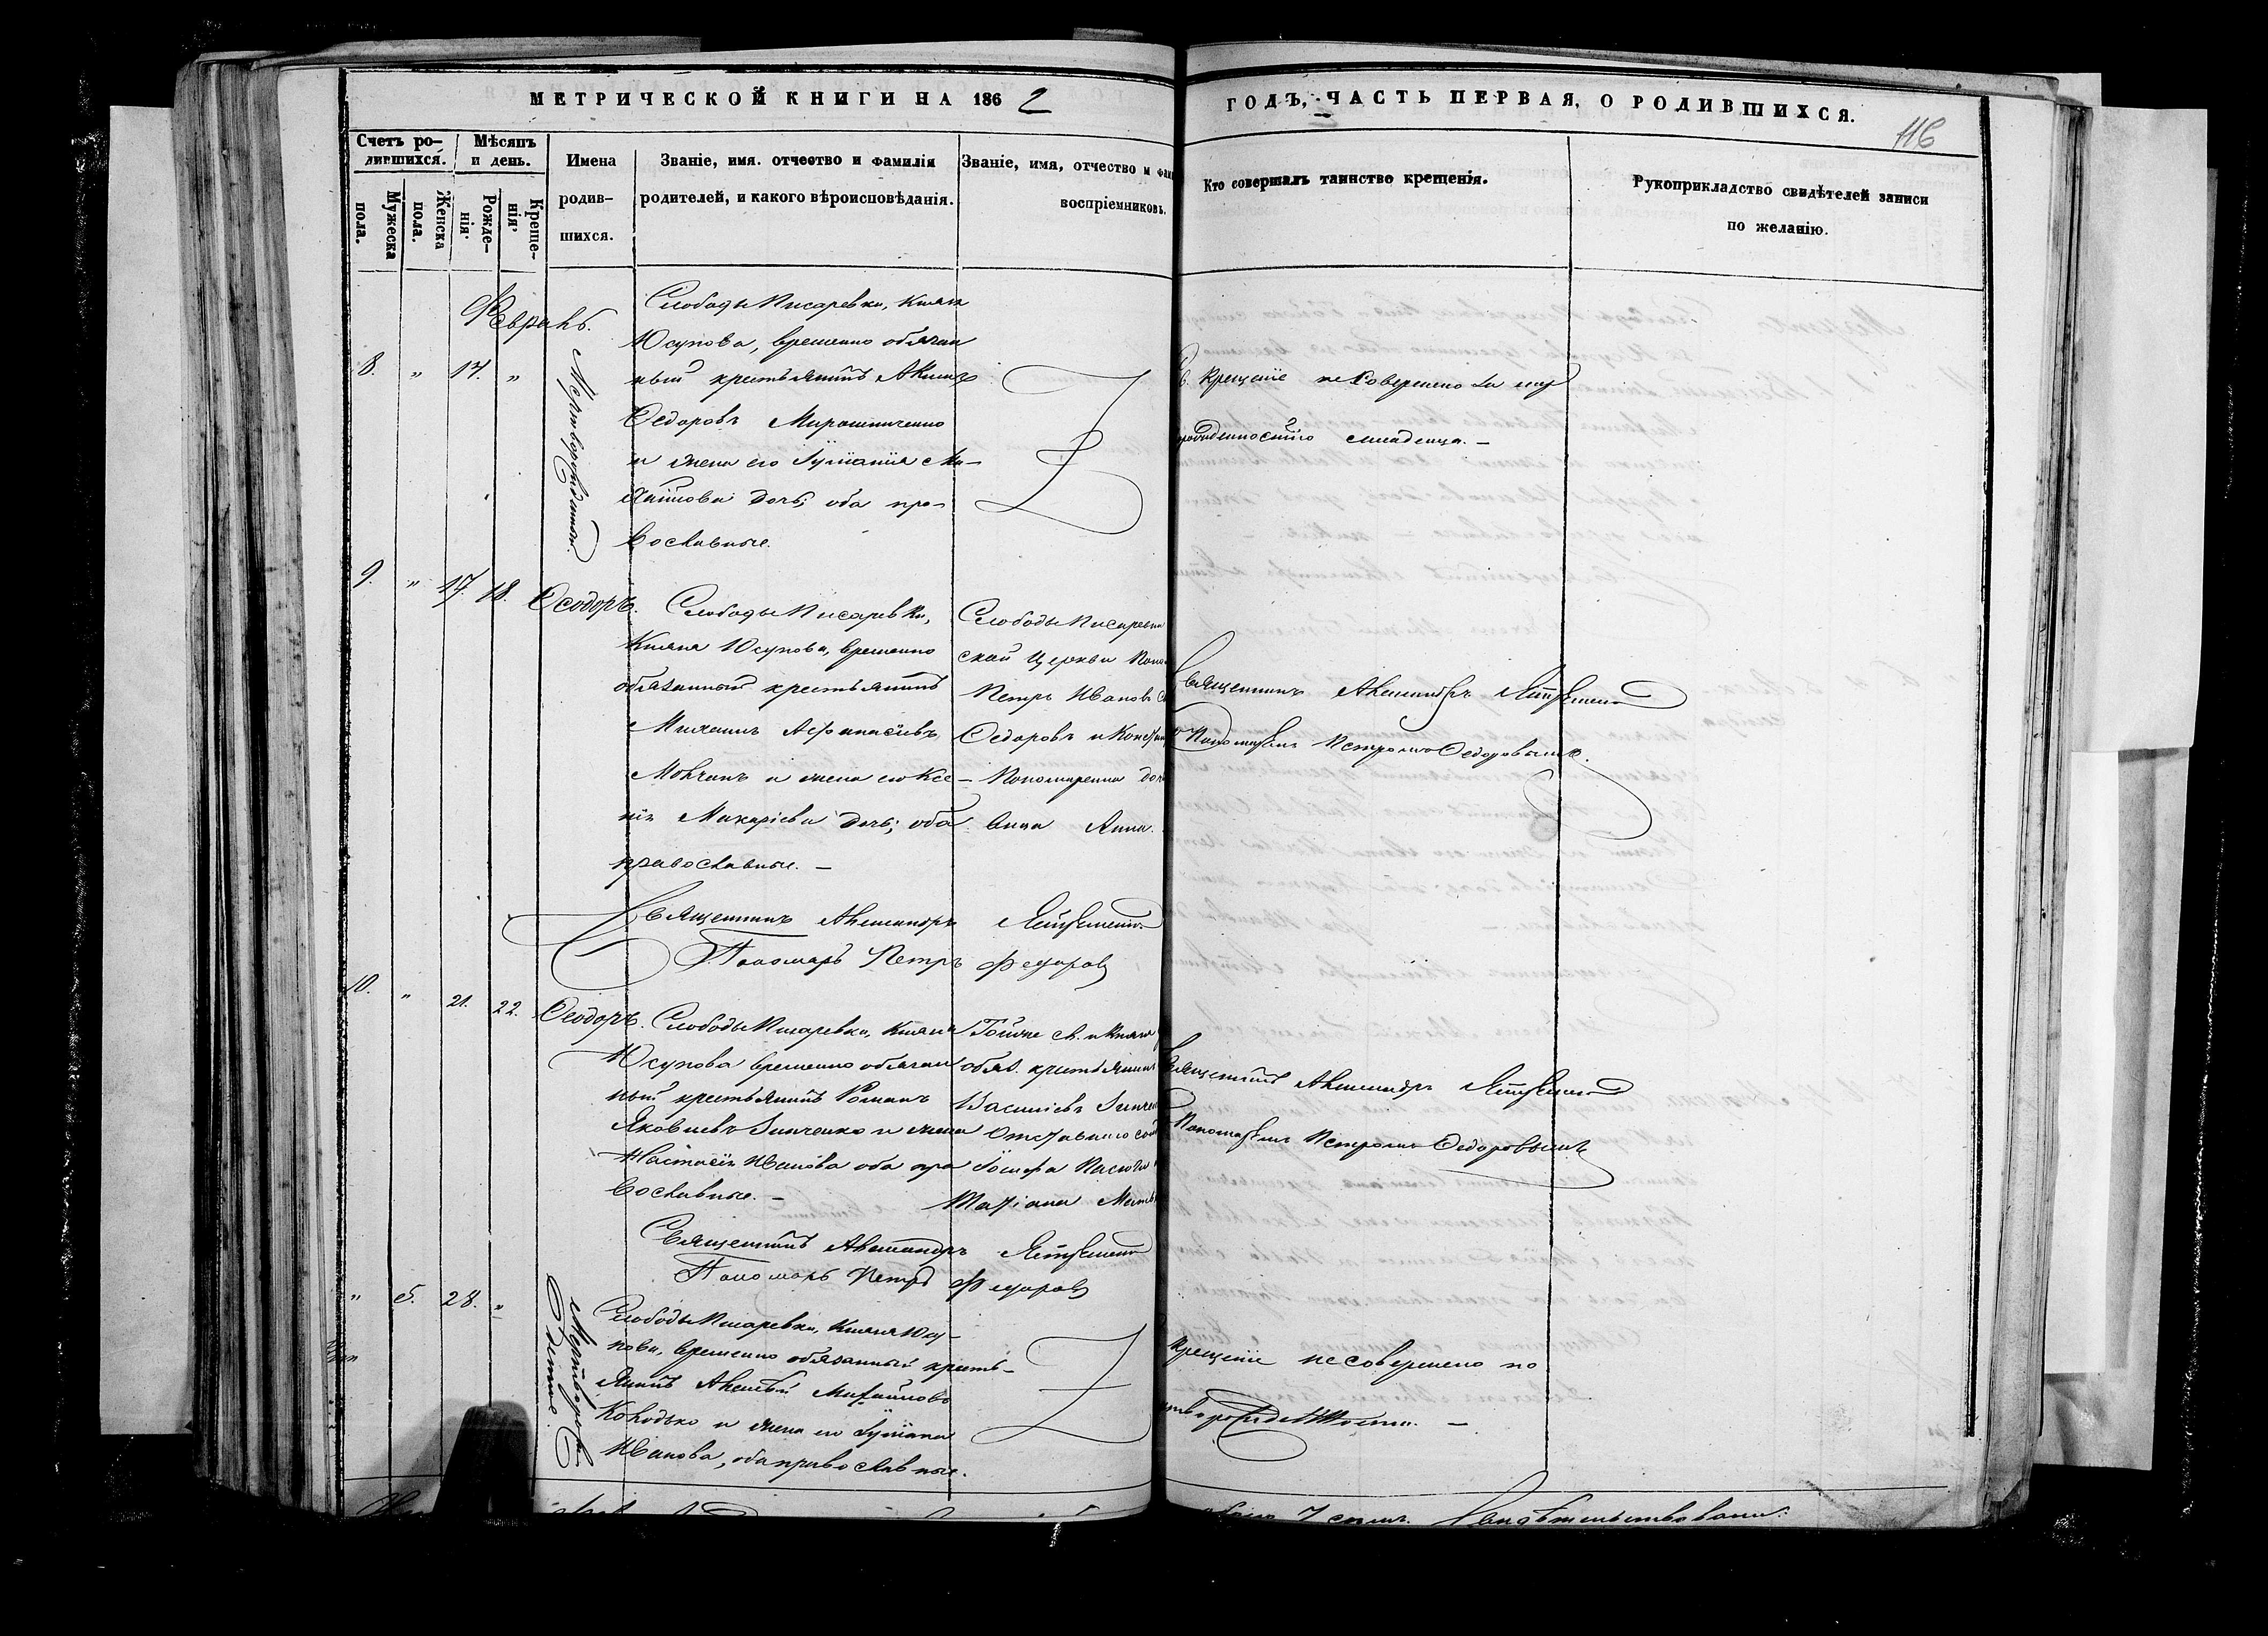 МЕТРИЧЕСКОЙ КНИГИ НА 1862
ГОДЪ, ЧАСТЬ ПЕРВАЯ, О РОДИВШИХСЯ.
116
Счетъ ро-
дившихся.
Мужеска пола.
Женска пола.
Мѣсяцъ
и день.
Рожде-
нія.
Креще-
нія.
Имена
родив-
шихся.
Званіе, имя, отчество и фамилія
родителей, и какого вѣроисповѣданія.
Званіе, имя, отчество и фам
воспріемниковъ.
Кто совершалъ таинство крещенія.
Рукоприкладство свидѣтелей записи
по желанію.
Февраль.
8. " 17. "
Мертворожденной.
Слободы Писаревки, Князя
Юсупова, временно обязан
ный крестьянинъ Акимъ
Федоровъ Мирошниченко
и жена его Іуліанія Ми-
хайлова дочь; оба пра-
вославные.
Св. Крещеніе не совершено за
младенца. -
9. " 17. 18. Ѳеодоръ.
Слободы Писаревки,
Князя Юсупова, временно
обязанный крестьянинъ
Михаилъ Аѳанасіевъ
Мовчанъ и жена его Ксе-
нія Макаріева дочь; оба
православные. -
Слободы Писарев
ской Церкви Поно
Петръ Ивановъ
Ѳедоровъ и
Пономаренка доч
вица Анна.
Священникъ Александръ
Пономаремъ Петромъ Ѳедоровымъ.
Священникъ Александръ
Пономарь Петръ Федоровъ
10. " 21. 22. Ѳеодоръ.
Слободы Писаревки, Князя
Юсупова временно обязан
ный крестьянинъ Романъ
Яковлевъ Зинченко и жена
Настасія Иванова оба пра
вославные. -
Тойже сл. и Князя
обяз. крестьянинъ
Василіевъ Зинчен
Отставного сол
Іосифа
Татіана
Священникъ Александръ
Пономаремъ Петромъ Ѳедоровымъ
Священникъ Александръ
Пономарь Петръ Федоровъ
" 5. 28. "
Слободы Писаревки, Князя Юсу-
пова, временно обязанный кресть-
янинъ Алексѣй Михайловъ
Колодько и жена его Іуліана
Иванова, оба православные.
Крещеніе не совершено по
творожденности. -
7 Свидѣтельствовали: